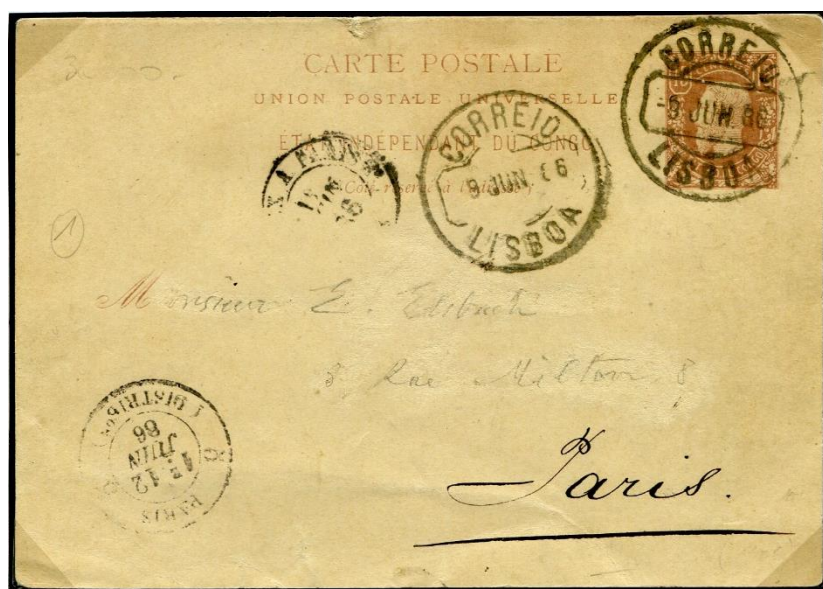 CARTE POSTALE
UNION POSTALE UNIVERSELLE
ETAT INDÉPENDANT DU CONGO
(Côté réservé à l'adresse)
CORREIO
9 JUN 86
LISBOA
CORREIO
9 JUN. 86
LISBOA
1
Monsieur E.
8 Rue Milton 8
Paris.
1E 12
JUIN
86
PARIS
(DISTRIB